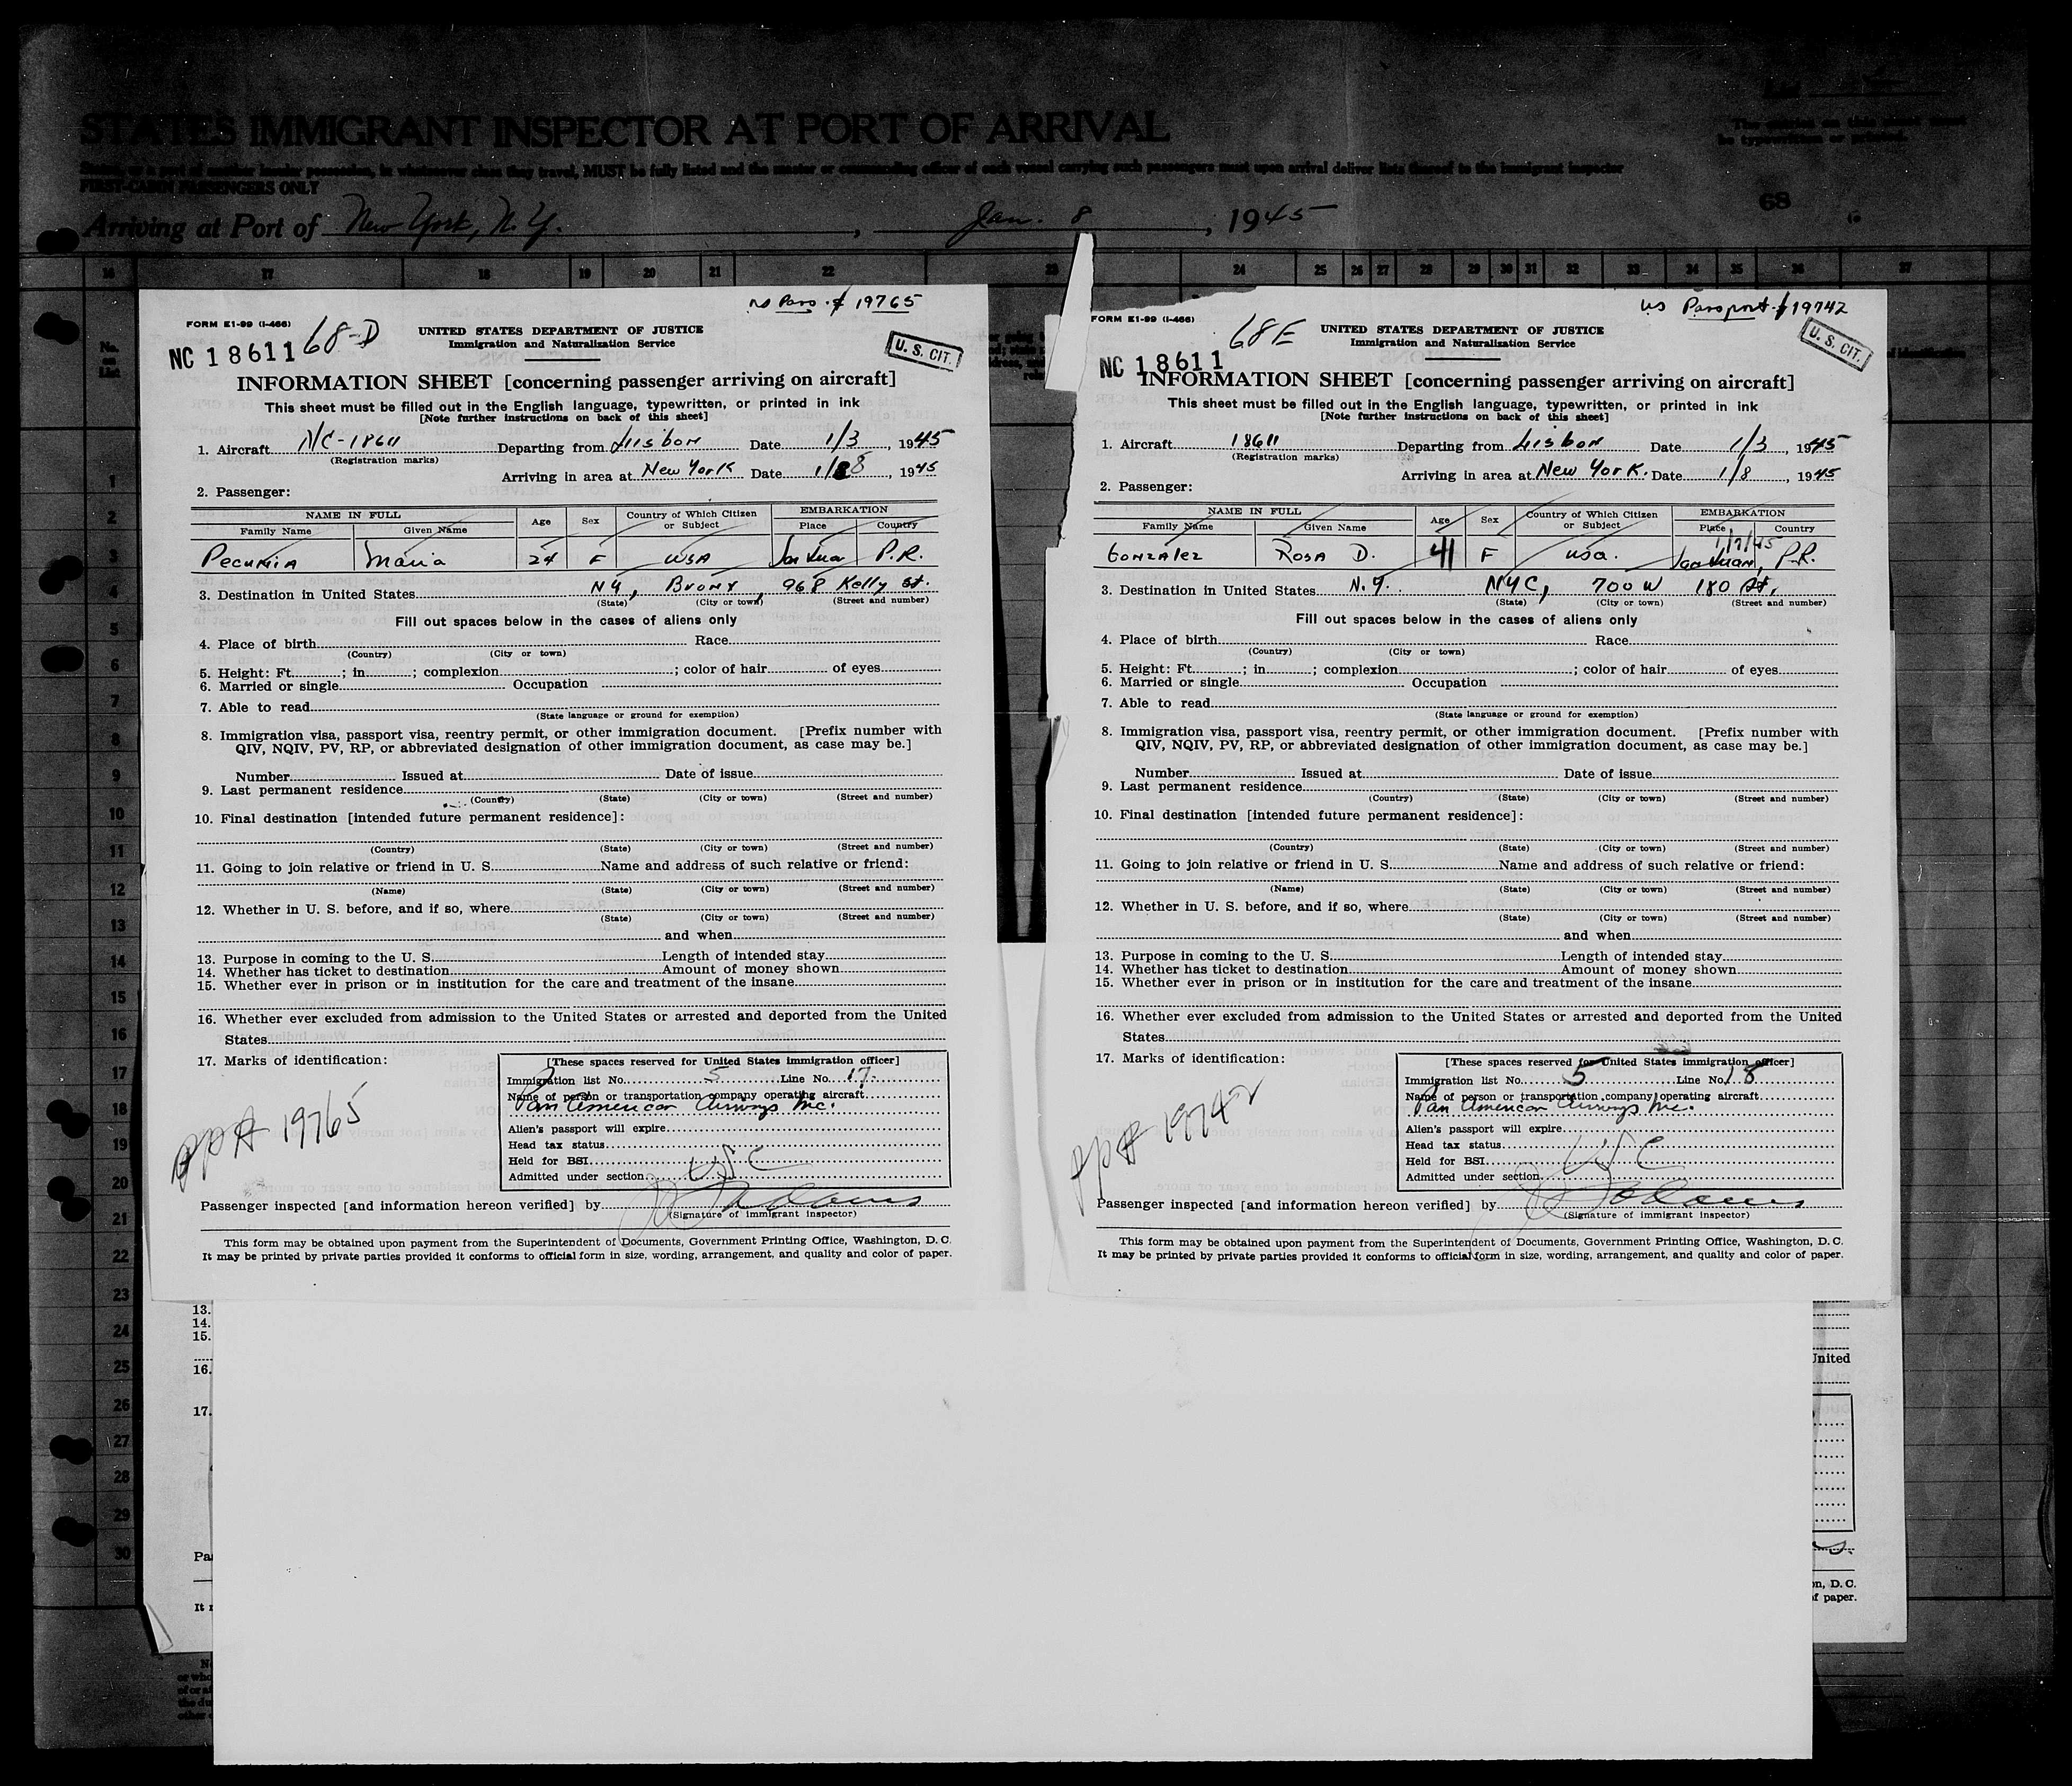 STATES IMMIGRANT INSPECTOR AT PORT OF ARRIVAL
in whatsoever class they travel, MUST be fully listed and the master or commanding officer of each vessel carrying such passengers must upon arrival deliver lists thereof to the immigrant inspector
FIRST-CABIN PASSENGERS ONLY
be typewritten or printed.
68
Arriving at Port of New York, N.Y. , Jan. 8 , 1945
16 17 18 19 20 21 22 23 24 25 26 27 28 29 30 31 32 33 34 35 36 37
No. on List
1
2
3
4
5
6
7
8
9
10
11
12
13
14
15
16
17
18
19
20
21
22
23
24
25
26
27
28
29
30
Pass. # 19765
FORM E1-99 (I-466)
68-D
UNITED STATES DEPARTMENT OF JUSTICE
Immigration and Naturalization Service
NC 18611
U. S. CIT.
INFORMATION SHEET [concerning passenger arriving on aircraft]
This sheet must be filled out in the English language, typewritten, or printed in ink
[Note further instructions on back of this sheet]
1. Aircraft NC-18611 Departing from Lisbon Date 1/3, 1945
(Registration marks)
Arriving in area at New York Date 1/8, 1945
2. Passenger:
NAME IN FULL Age Sex Country of Which Citizen or Subject EMBARKATION
Family Name Given Name Place Country
Pecunia Maria 24 F USA San Juan P.R.
3. Destination in United States NY, Bronx, 968 Kelly St.
(State) (City or town) (Street and number)
Fill out spaces below in the cases of aliens only
4. Place of birth Race
(Country) (City or town)
5. Height: Ft. ; in. ; complexion ; color of hair of eyes
6. Married or single Occupation
7. Able to read
(State language or ground for exemption)
8. Immigration visa, passport visa, reentry permit, or other immigration document. [Prefix number with
QIV, NQIV, PV, RP, or abbreviated designation of other immigration document, as case may be.]
Number Issued at Date of issue
9. Last permanent residence
(Country) (State) (City or town) (Street and number)
10. Final destination [intended future permanent residence]:
(Country) (State) (City or town) (Street and number)
11. Going to join relative or friend in U. S. Name and address of such relative or friend:
(Name) (State) (City or town) (Street and number)
12. Whether in U. S. before, and if so, where
(State) (City or town) (Street and number)
and when
13. Purpose in coming to the U. S. Length of intended stay
14. Whether has ticket to destination Amount of money shown
15. Whether ever in prison or in institution for the care and treatment of the insane
16. Whether ever excluded from admission to the United States or arrested and deported from the United
States
17. Marks of identification:
pp# 19765
[These spaces reserved for United States immigration officer]
Immigration list No. 5 Line No. 17
Name of person or transportation company operating aircraft
Pan American Airways Inc.
Alien's passport will expire
Head tax status
Held for BSI
Admitted under section USC
Passenger inspected [and information hereon verified] by Adams
(Signature of immigrant inspector)
This form may be obtained upon payment from the Superintendent of Documents, Government Printing Office, Washington, D. C.
It may be printed by private parties provided it conforms to official form in size, wording, arrangement, and quality and color of paper.
US Passport # 19742
FORM E1-99 (I-466)
68E
UNITED STATES DEPARTMENT OF JUSTICE
Immigration and Naturalization Service
NC 18611
U. S. CIT.
INFORMATION SHEET [concerning passenger arriving on aircraft]
This sheet must be filled out in the English language, typewritten, or printed in ink
[Note further instructions on back of this sheet]
1. Aircraft 18611 Departing from Lisbon Date 1/3, 1945
(Registration marks)
Arriving in area at New York. Date 1/8, 1945
2. Passenger:
NAME IN FULL Age Sex Country of Which Citizen or Subject EMBARKATION
Family Name Given Name Place Country
1/7/45
Gonzalez Rosa D. 41 F USA. San Juan, P.R.
3. Destination in United States N.Y. NYC, 700 W 180 St.
(State) (City or town) (Street and number)
Fill out spaces below in the cases of aliens only
4. Place of birth Race
(Country) (City or town)
5. Height: Ft. ; in. ; complexion ; color of hair of eyes
6. Married or single Occupation
7. Able to read
(State language or ground for exemption)
8. Immigration visa, passport visa, reentry permit, or other immigration document. [Prefix number with
QIV, NQIV, PV, RP, or abbreviated designation of other immigration document, as case may be.]
Number Issued at Date of issue
9. Last permanent residence
(Country) (State) (City or town) (Street and number)
10. Final destination [intended future permanent residence]:
(Country) (State) (City or town) (Street and number)
11. Going to join relative or friend in U. S. Name and address of such relative or friend:
(Name) (State) (City or town) (Street and number)
12. Whether in U. S. before, and if so, where
(State) (City or town) (Street and number)
and when
13. Purpose in coming to the U. S. Length of intended stay
14. Whether has ticket to destination Amount of money shown
15. Whether ever in prison or in institution for the care and treatment of the insane
16. Whether ever excluded from admission to the United States or arrested and deported from the United
States
17. Marks of identification:
pp# 19742
[These spaces reserved for United States immigration officer]
Immigration list No. 5 Line No. 18
Name of person or transportation company operating aircraft
Pan American Airways Inc.
Alien's passport will expire
Head tax status
Held for BSI
Admitted under section USC
Passenger inspected [and information hereon verified] by Adams
(Signature of immigrant inspector)
This form may be obtained upon payment from the Superintendent of Documents, Government Printing Office, Washington, D. C.
It may be printed by private parties provided it conforms to official form in size, wording, arrangement, and quality and color of paper.
13.
14.
15.
16. United
17.
D. C.
It of paper.